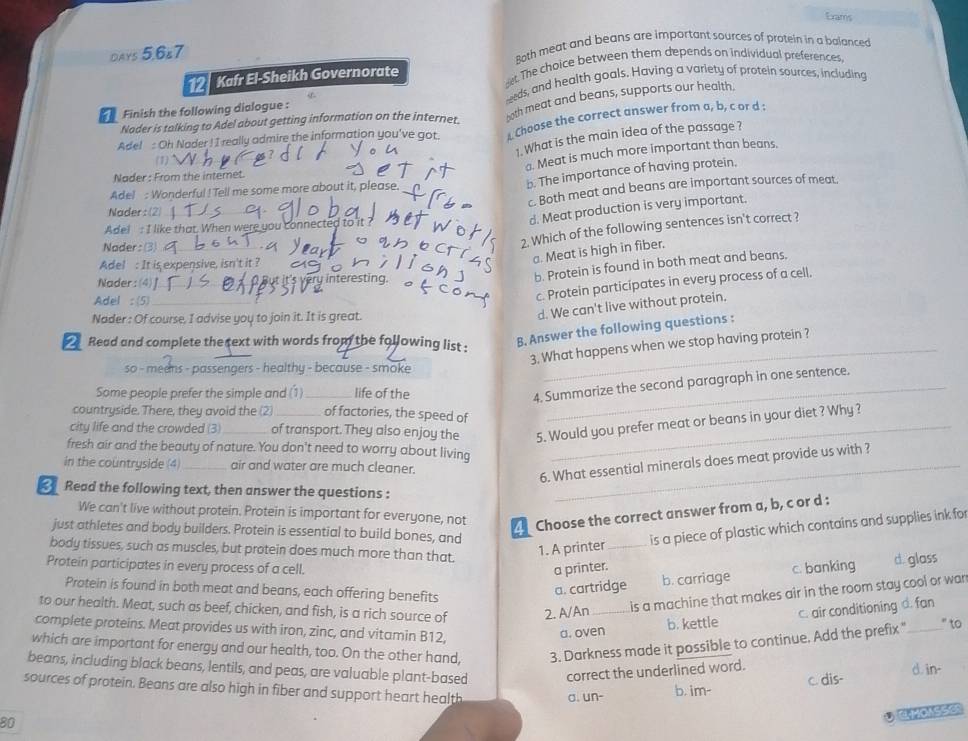 Exams
DAYS 5,6&7
12 Kafr El-Sheikh Governorate
1 Finish the following dialogue :
Nader is talking to Adel about getting information on the internet.
Adel : Oh Nader ! I really admire the information you've got.
(1) Where did you get it ?
Nader : From the internet.
Adel : Wonderful ! Tell me some more about it, please.
Nader : (2) It Is a global network
Adel : I like that. When were you connected to it ?
Nader : (3) about a year
Adel : It is expensive, isn't it ?
Nader : (4) It is But it's very interesting.
Adel : (5)
Nader : Of course, I advise you to join it. It is great.
2 Read and complete the text with words from the following list :
so - means - passengers - healthy - because - smoke
Some people prefer the simple and (1) ______ life of the
countryside. There, they avoid the (2) ______ of factories, the speed of
city life and the crowded (3) ______ of transport. They also enjoy the
fresh air and the beauty of nature. You don't need to worry about living
in the countryside (4) ______ air and water are much cleaner.
3 Read the following text, then answer the questions :
We can't live without protein. Protein is important for everyone, not
just athletes and body builders. Protein is essential to build bones, and
body tissues, such as muscles, but protein does much more than that.
Protein participates in every process of a cell.
Protein is found in both meat and beans, each offering benefits
to our health. Meat, such as beef, chicken, and fish, is a rich source of
complete proteins. Meat provides us with iron, zinc, and vitamin B12,
which are important for energy and our health, too. On the other hand,
beans, including black beans, lentils, and peas, are valuable plant-based
sources of protein. Beans are also high in fiber and support heart health
80
Both meat and beans are important sources of protein in a balanced
diet. The choice between them depends on individual preferences,
needs, and health goals. Having a variety of protein sources, including
both meat and beans, supports our health.
A. Choose the correct answer from a, b, c or d :
1. What is the main idea of the passage ?
a. Meat is much more important than beans.
b. The importance of having protein.
c. Both meat and beans are important sources of meat.
d. Meat production is very important.
2. Which of the following sentences isn't correct ?
a. Meat is high in fiber.
b. Protein is found in both meat and beans.
c. Protein participates in every process of a cell.
d. We can't live without protein.
B. Answer the following questions :
3. What happens when we stop having protein ?
4. Summarize the second paragraph in one sentence.
5. Would you prefer meat or beans in your diet ? Why ?
6. What essential minerals does meat provide us with ?
4 Choose the correct answer from a, b, c or d :
1. A printer ______ is a piece of plastic which contains and supplies ink for
a printer.
a. cartridge b. carriage c. banking d. glass
2. A/An ______ is a machine that makes air in the room stay cool or warm
a. oven b. kettle c. air conditioning d. fan
3. Darkness made it possible to continue. Add the prefix " ______ " to
correct the underlined word.
a. un- b. im- c. dis- d. in-
EL-MOASSER